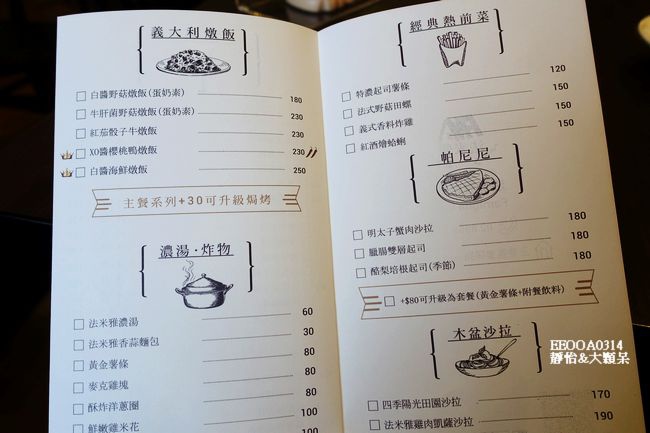 義大利燉飯
白醬野菇燉飯(蛋奶素) 180
牛肝菌野菇燉飯(蛋奶素) 230
紅茄骰子牛燉飯 230
XO醬櫻桃鴨燉飯 230
白醬海鮮燉飯 250
主餐系列+30可升級焗烤
濃湯·炸物
法米雅濃湯 60
法米雅香蒜麵包 30
黃金薯條 80
麥克雞塊 80
酥炸洋蔥圈 80
鮮嫩雞米花 100
100
經典熱前菜
特濃起司薯條 120
法式野菇田螺 150
義式香料炸雞 150
紅酒燴蛤蜊 150
帕尼尼
明太子蟹肉沙拉 180
臘腸雙層起司 180
酪梨培根起司(季節) 180
+$80可升級為套餐(黃金薯條+附餐飲料)
木盆沙拉
四季陽光田園沙拉 170
法米雅雞肉凱薩沙拉 190
EEOOA0314
靜怡&大顆呆